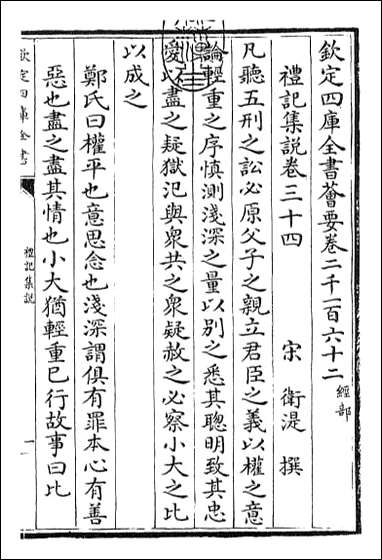 欽定四庫全書薈要卷二千一百六十二 經部
禮記集說卷三十四
宋 衛湜 撰
凡聽五刑之訟必原父子之親立君臣之義以權之意
論輕重之序慎測淺深之量以別之悉其聰明致其忠
愛以盡之疑獄汜與衆共之衆疑赦之必察小大之比
以成之
鄭氏曰權平也意思念也淺深謂俱有罪本心有善
惡也盡之盡其情也小大猶輕重已行故事曰比
欽定四庫全書
禮記集說
一